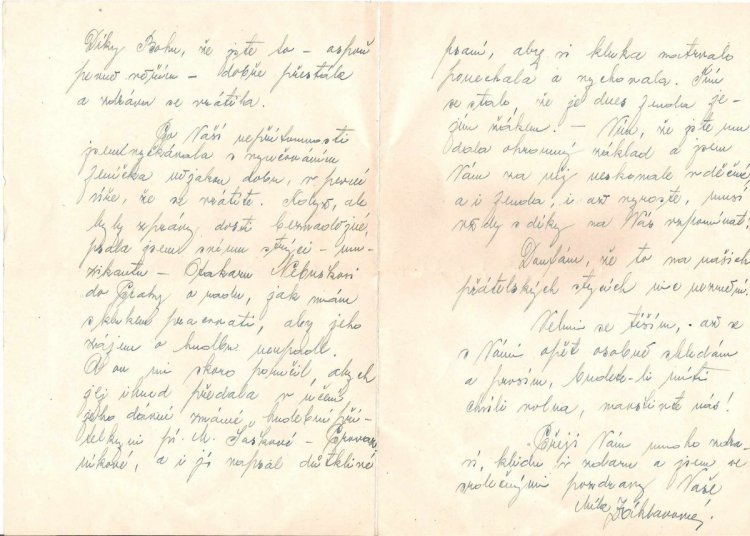 Díky Bohu, že jste to – aspoň
– dobře přestála
a zdráva se vrátila.
Po Vaší nepřítomnosti
jsem vyčkávala s vyučováním
Zeníčka nějakou dobu, v pevné
víře, že se vrátíte. Když, ale
byly zprávy dosti beznadějné,
psala jsem svému strýci – mu-
zikantu – Otakaru
do Prahy o radu, jak mám
s klukem pracovati, aby jeho
zájem o hudbu neupadl.
A on mi skoro poručil abych
jej ihned předala v učení
jeho dávné známé hudební pří-
telkyni pí. M. Šaškové –
a i jí napsal důtklivé
psaní, aby si kluka natrvalo
ponechala a vychovala. Tím
se stalo, že je dnes Zenda je-
jím žákem. – Vím, že jste mu
dala ohromný základ a jsem
Vám za něj neskonale vděčná
a i Zenda, i až vyroste, musí
vždy s díky na Vás vzpomínat!
Doufám, že to na našich
přátelských stycích nic nezmění.
Velmi se těším, až se
s Vámi opět osobně shledám
a prosím, budete-li míti
chvíli volna, navštivte nás!
Přeji Vám mnoho zdra-
ví, klidu a jsem se
srdečnými pozdravy Vaše
Míla